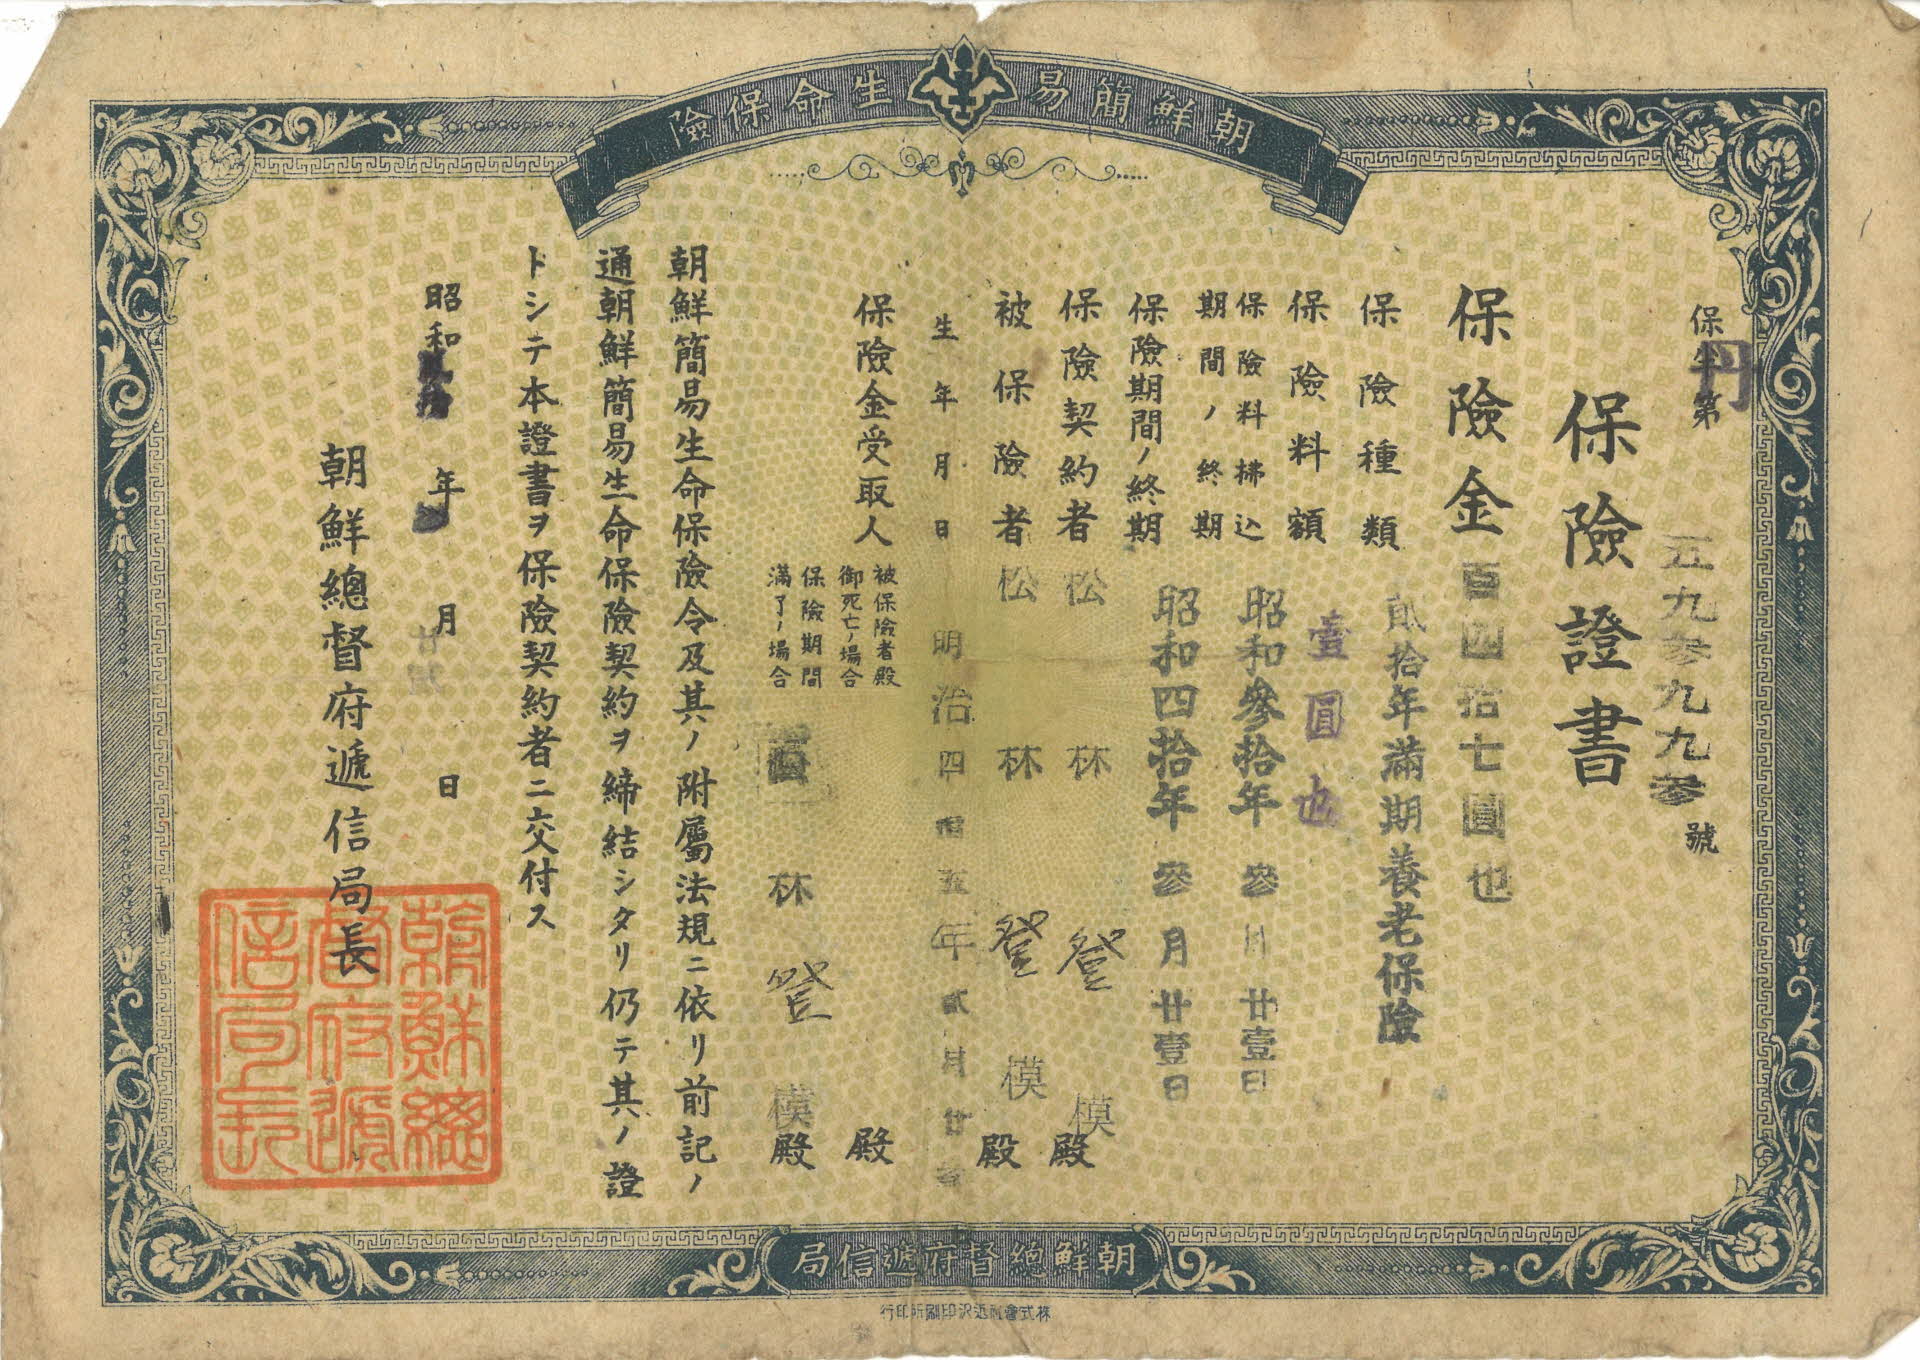 朝鮮簡易生命保險
保生第五九參九九參號
丹
保險證書
保險金百四拾七圓也
保險種類 貳拾年滿期養老保險
保險料額 壹圓也
保險料拂込期間ノ終期 昭和參拾年參月廿壹日
保險期間ノ終期 昭和四拾年參月廿壹日
保險契約者 松林登模殿
被保險者 松林登模殿
生年月日 明治四拾五年貳月廿
保險金受取人
被保險者殿御死亡ノ場合 殿
保險期間滿了ノ場合 林登模殿
朝鮮簡易生命保險令及其ノ附屬法規ニ依リ前記ノ
通朝鮮簡易生命保險契約ヲ締結シタリ仍テ其ノ證
トシテ本證書ヲ保險契約者ニ交付ス
昭和 年 月 日
朝鮮總督府遞信局長
朝鮮總督府遞信局長
朝鮮總督府遞信局
株式會社近沢印刷所印行